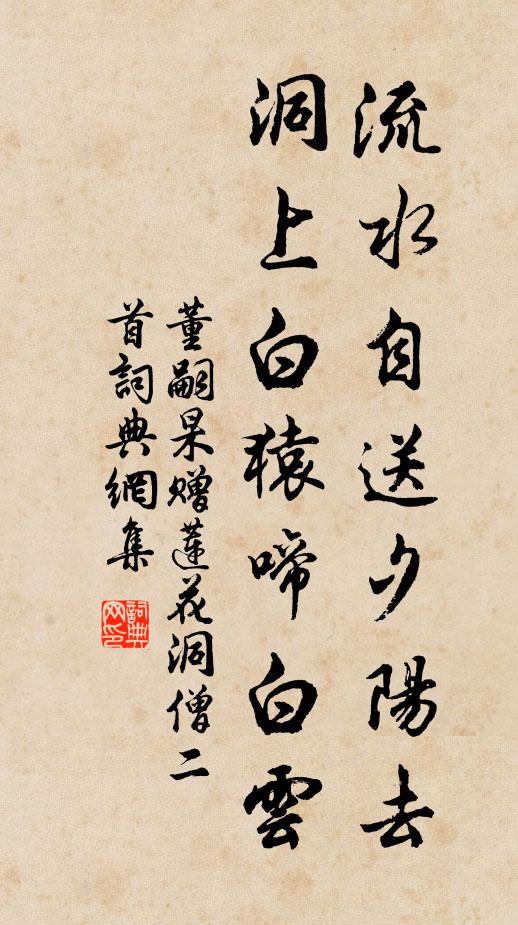 流水自送夕陽去
洞上白猿啼白雲
董嗣杲贈蓮花洞僧二
首詞典網集
詞典
网印